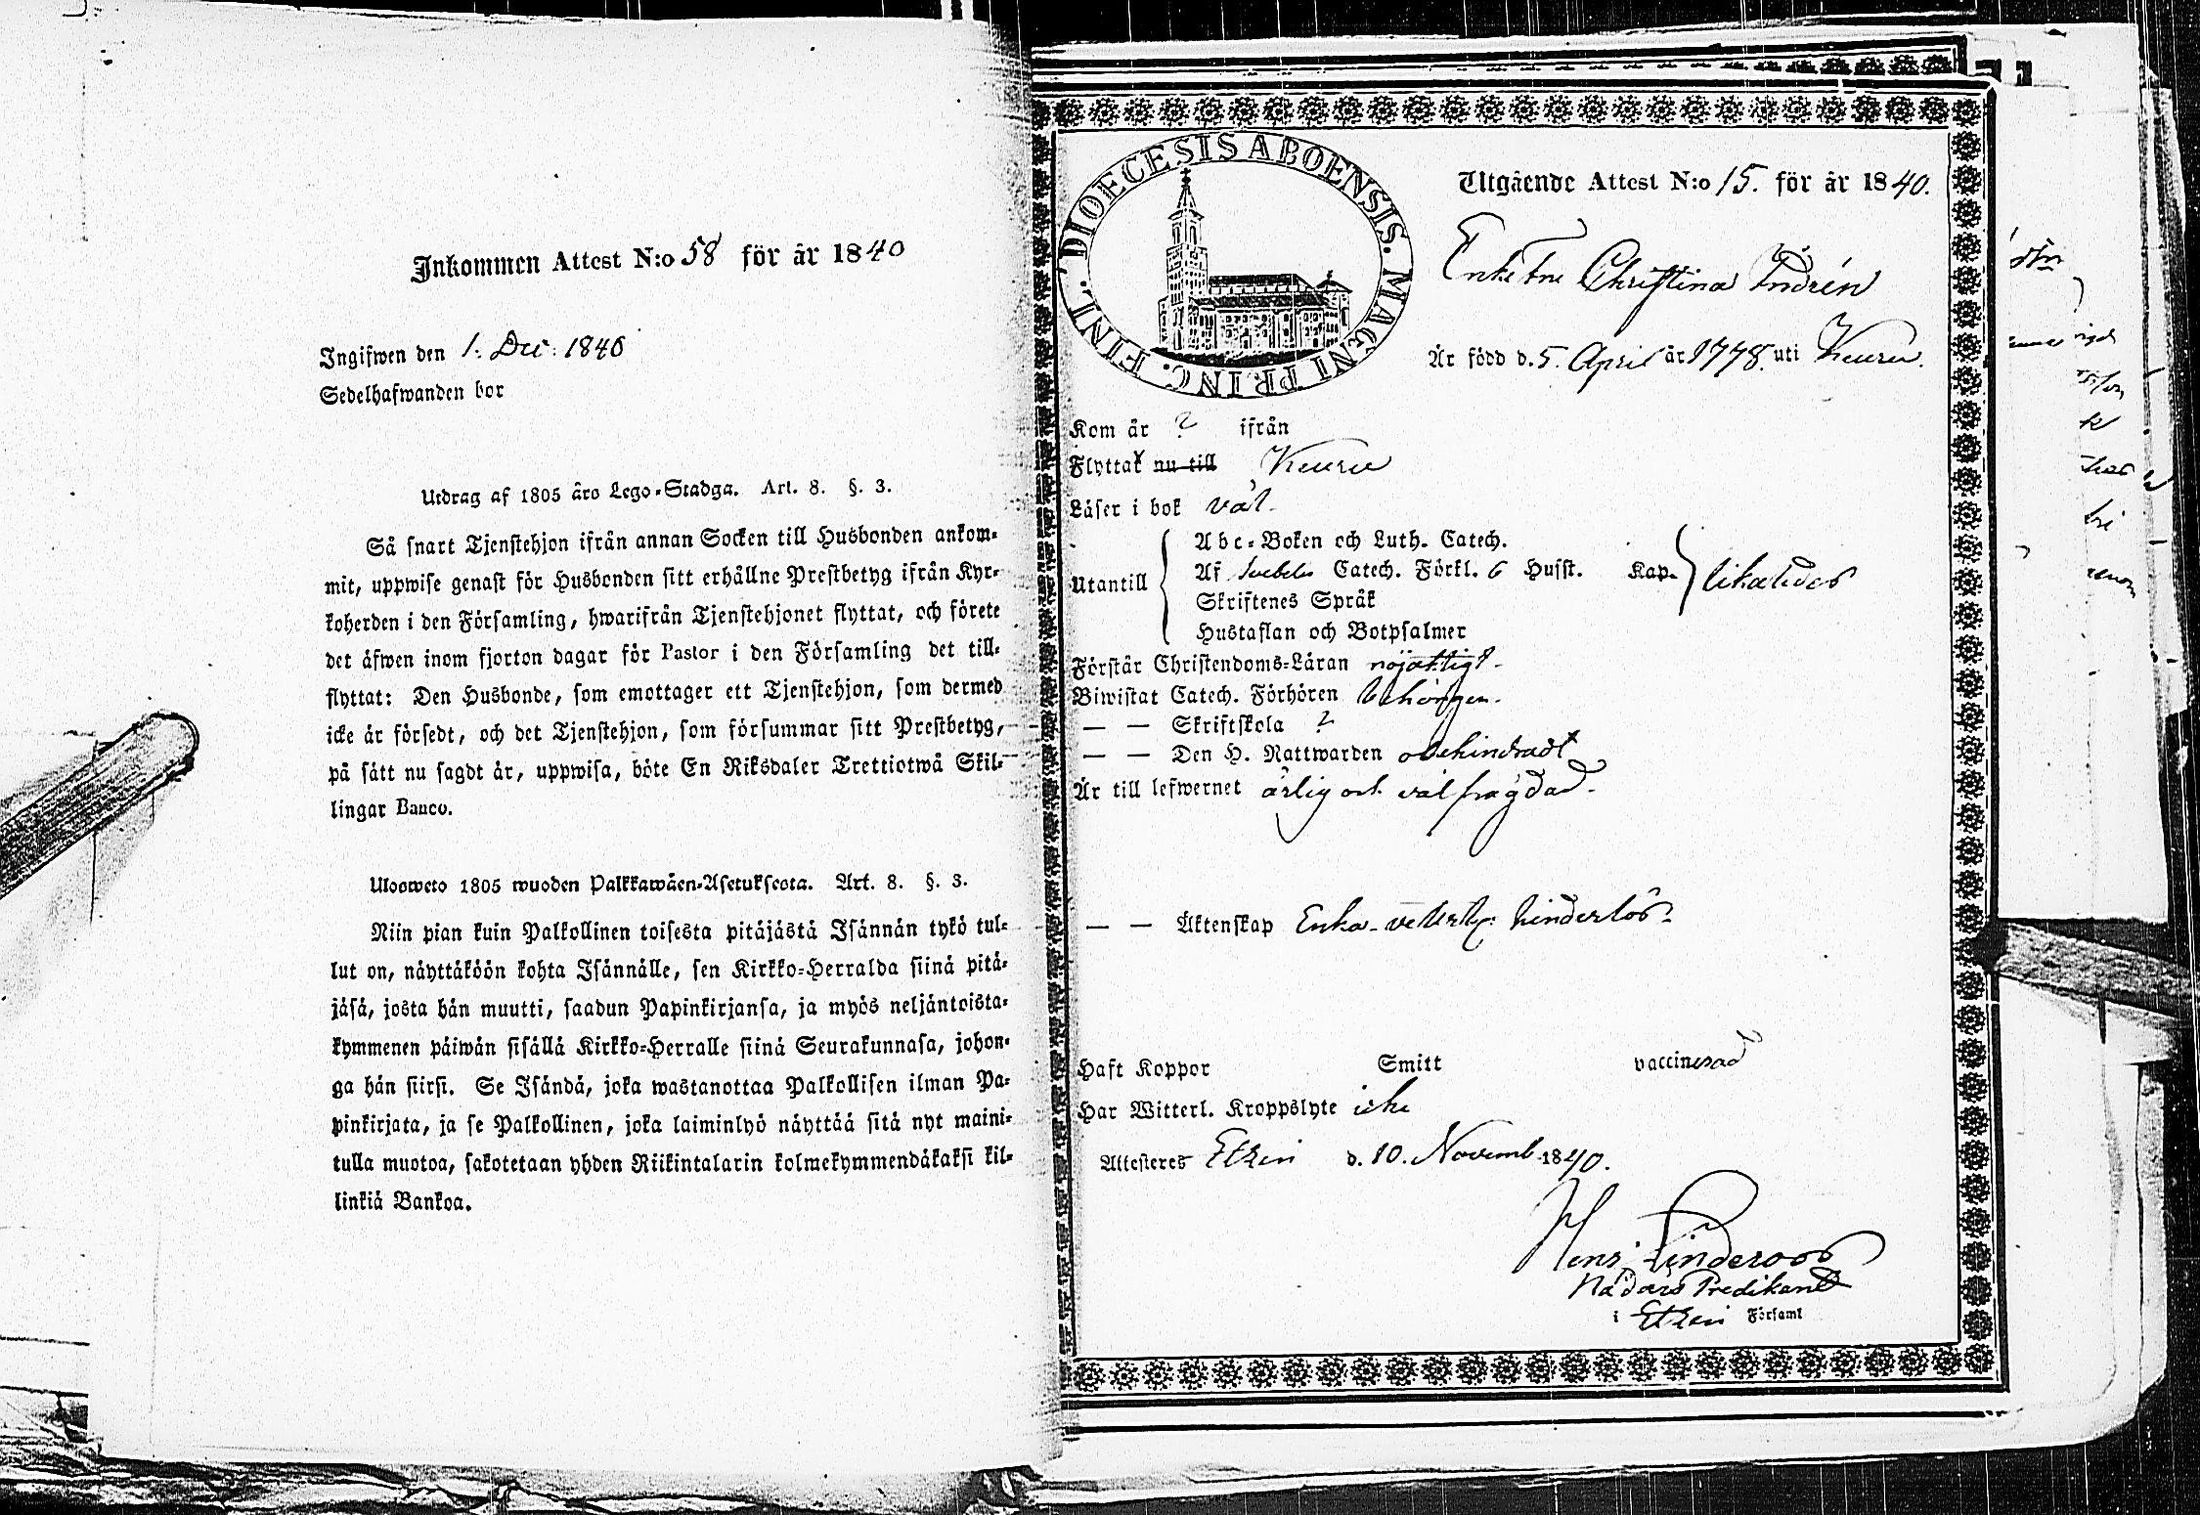 Inkommen Attest N:o 58 för år 1840
Ingifwen den 1. Dec: 1840
Sedelhafwanden bor
Utdrag af 1805 års Lego-Stadga. Art. 8. §. 3.
Så snart Tjenstehjon ifrån annan Socken till Husbonden ankom-
mit, uppwise genast för Husbonden sitt erhållne Prestbetyg ifrån Kyr-
koherden i den Församling, hwarifrån Tjenstehjonet flyttat, och förete
det äfwen inom fjorton dagar för Pastor i den Församling det till-
flyttat: Den Husbonde, som emottager ett Tjenstehjon, som dermed
icke är försedt, och det Tjenstehjon, som försummar sitt Prestbetyg,
på sätt nu sagdt är, uppwisa, böte En Riksdaler Trettiotwå Skil-
lingar Banco.
Ulosweto 1805 wuoden Palkkawäen-Asetuksesta. Art. 8. §. 3.
Niin pian kuin Palkollinen toisesta pitäjästä Isännän tykö tul-
lut on, näyttäköön kohta Isännälle, sen Kirkko-Herralda siinä pitä-
jäsä, josta hän muutti, saadun Papinkirjansa, ja myös neljäntoista-
kymmenen päiwän sisällä Kirkko-Herralle siinä Seurakunnasa, johon-
ga hän siirsi. Se Isändä, joka wastanottaa Palkollisen ilman Pa-
pinkirjata, ja se Palkollinen, joka laiminlyö näyttää sitä nyt maini-
tulla muotoa, sakotetaan yhden Riikintalarin kolmekymmendäkaksi kil-
linkiä Bankoa.
DIOECESIS ABOENSIS. MAGNI PRINC. FINL.
Utgående Attest N:o 15. för år 1840.
Enke Fru Christina Indrén
Är född d. 5. April år 1778. uti Keuru.
Kom år ? ifrån
Flyttat nu till Keuru
Läser i bok väl.
Utantill
Abc-Boken och Luth. Catech.
Af Svebelii Catech. Förkl. 6 Husst. Kap. likaledes
Skriftenes Språk
Hustaflan och Botpsalmer
Förstår Christendoms-Läran nöjaktigt.
Biwistat Catech. Förhören behörigen.
— — Skriftskola ?
— — Den H. Nattwarden obehindradt
Är till lefwernet ärlig och välfrägdad.
— — Äktenskap Enka hinderlös.
Haft Koppor Smitt vaccinerad
Har Witterl. Kroppslyte icke
Attesteres Etzeri d. 10. Novemb. 1840.
Henr. Linderoos
Nådårs Predikant
i Etzeri Församl